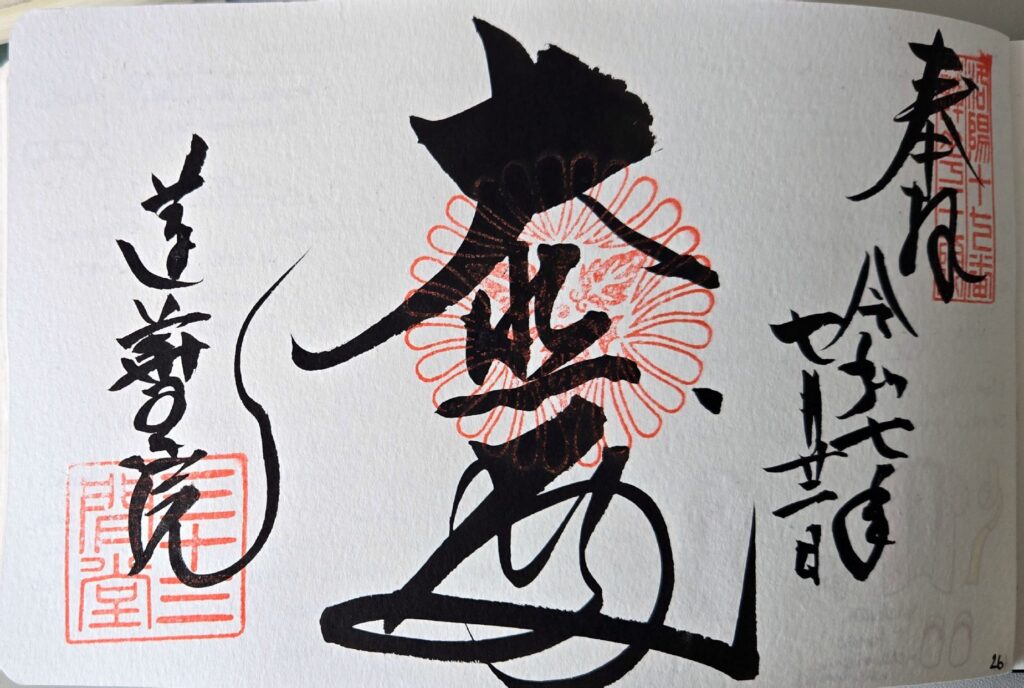 洛陽十七番
奉拝
令和七年
七月廿一日
大悲殿
蓮華王院
三十三
間堂
26